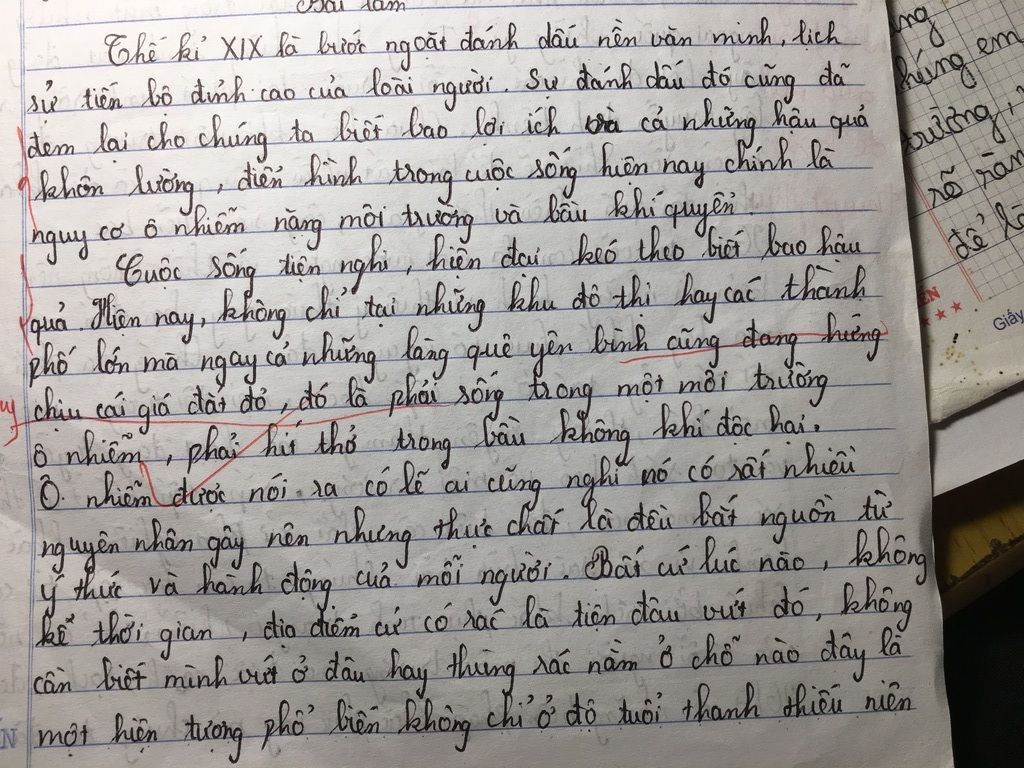 Bài làm
Thế kỉ XIX là bước ngoặt đánh dấu nền văn minh, lịch
sử tiến bộ đỉnh cao của loài người. Sự đánh dấu đó cũng đã
đem lại cho chúng ta biết bao lợi ích và cả những hậu quả
khôn lường, điển hình trong cuộc sống hiện nay chính là
nguy cơ ô nhiễm nặng môi trường và bầu khí quyển.
Cuộc sống tiện nghi, hiện đại kéo theo biết bao hậu
quả. Hiện nay, không chỉ tại những khu đô thị hay các thành
phố lớn mà ngay cả những làng quê yên bình cũng đang hứng
chịu cái giá đắt đỏ, đó là phải sống trong một môi trường
ô nhiễm, phải hít thở trong bầu không khí độc hại.
Ô nhiễm được nói ra có lẽ ai cũng nghĩ nó có rất nhiều
nguyên nhân gây nên nhưng thực chất là đều bắt nguồn từ
ý thức và hành động của mỗi người. Bất cứ lúc nào, không
kể thời gian, địa điểm cứ có rác là tiện đâu vứt đó, không
cần biết mình vứt ở đâu hay thùng rác nằm ở chỗ nào đây là
một hiện tượng phổ biến không chỉ ở độ tuổi thanh thiếu niên
húng em
trường,
rõ ràn
để là
Giấy